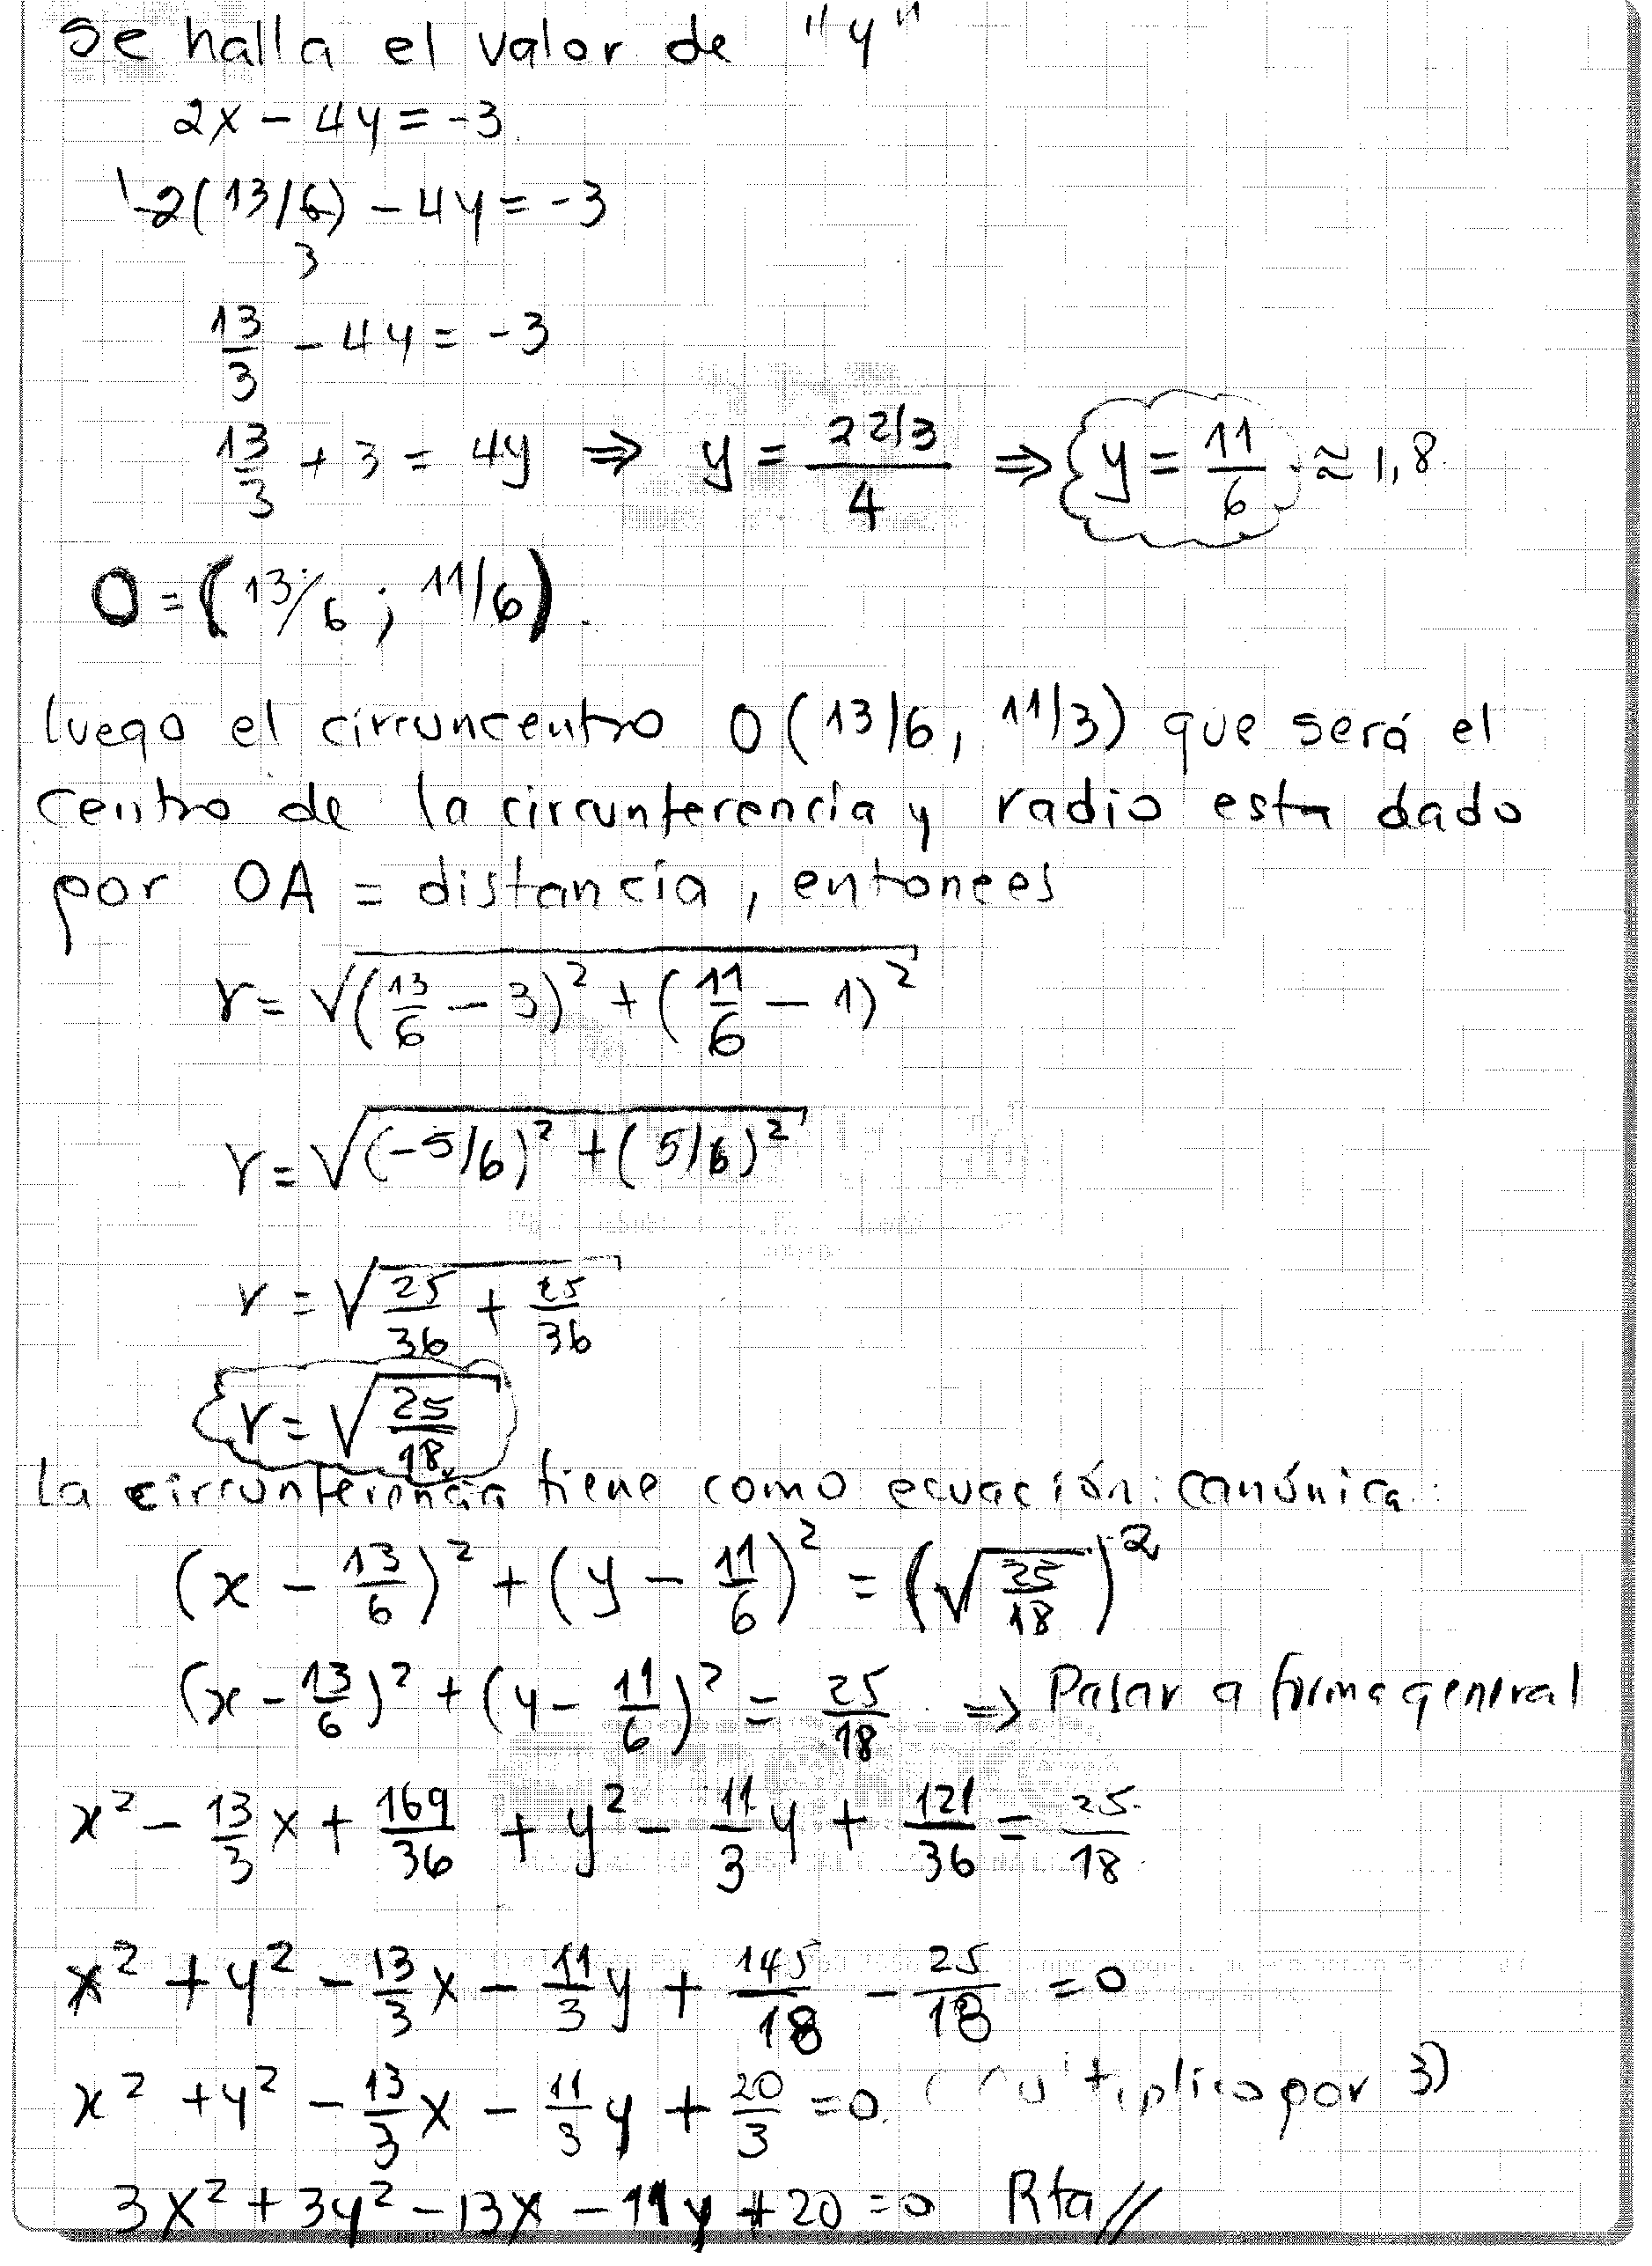 Se halla el valor de "y"
2x - 4y = -3
2(13/6) - 4y = -3
3
13/3 - 4y = -3
13/3 + 3 = 4y ⇒ y = 22/3 / 4 ⇒ y = 11/6 ≈ 1,8
O = (13/6 ; 11/6).
luego el circuncentro O(13/6, 11/3) que será el
centro de la circunferencia y radio esta dado
por OA = distancia, entonces
r = √((13/6 - 3)² + (11/6 - 1)²)
r = √((-5/6)² + (5/6)²)
r = √(25/36 + 25/36)
r = √(25/18)
la circunferencia tiene como ecuación canónica:
(x - 13/6)² + (y - 11/6)² = (√(25/18))²
(x - 13/6)² + (y - 11/6)² = 25/18 ⇒ Pasar a forma general
x² - 13/3 x + 169/36 + y² - 11/3 y + 121/36 = 25/18
x² + y² - 13/3 x - 11/3 y + 145/18 - 25/18 = 0
x² + y² - 13/3 x - 11/3 y + 20/3 = 0. (Multiplico por 3)
3x² + 3y² - 13x - 11y + 20 = 0 Rta //